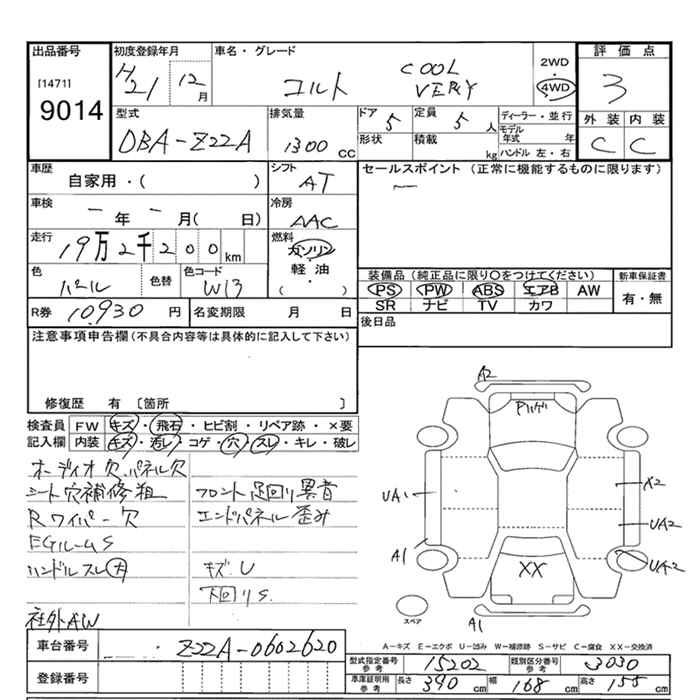 出品番号 初度登録年月 車名・グレード 評価点
[1471] H21 12月 コルト COOL VERY 2WD 4WD 3
9014
型式 排気量 ドア 5 定員 5人 ディーラー・並行 外装 内装
DBA-Z22A 1300cc 形状 積載 kg モデル年式 年 C C
ハンドル 左・右
車歴 シフト セールスポイント (正常に機能するものに限ります)
自家用・( ) AT
車検 冷房
年 月( 日) AAC
走行 燃料
19万2千200km ガソリン
軽油
( )
色 色替 色コード 装備品 (純正品に限り○をつけてください) 新車保証書
パール W13 PS PW ABS エアB AW 有・無
SR ナビ TV カワ
R券 10,930円 名変期限 月 日 後日品
注意事項申告欄 (不具合内容等は具体的に記入して下さい)
修復歴 有 〔箇所 〕
検査員 FW キズ・飛石・ヒビ割・リペア跡・×要
記入欄 内装 キズ・汚レ・コゲ・穴・スレ・キレ・破レ
オーディオ欠 パネル欠
シート穴補修粗 フロント足回り異音
Rワイパー欠 エンドパネル歪み
EGルームS
ハンドルスレ大 キズ、U
下回りS
社外AW
A2
UA1
A1
X2
UA2
UA2
XX
A1
スペア
A-キズ E-エクボ U-凹み W-補修跡 S-サビ C-腐食 XX-交換済
車台番号 Z22A-0602620
登録番号
型式指定番号 参考 15202 類別区分番号 参考 3030
車庫証明用 参考 長さ 390cm 幅 168cm 高さ 155cm